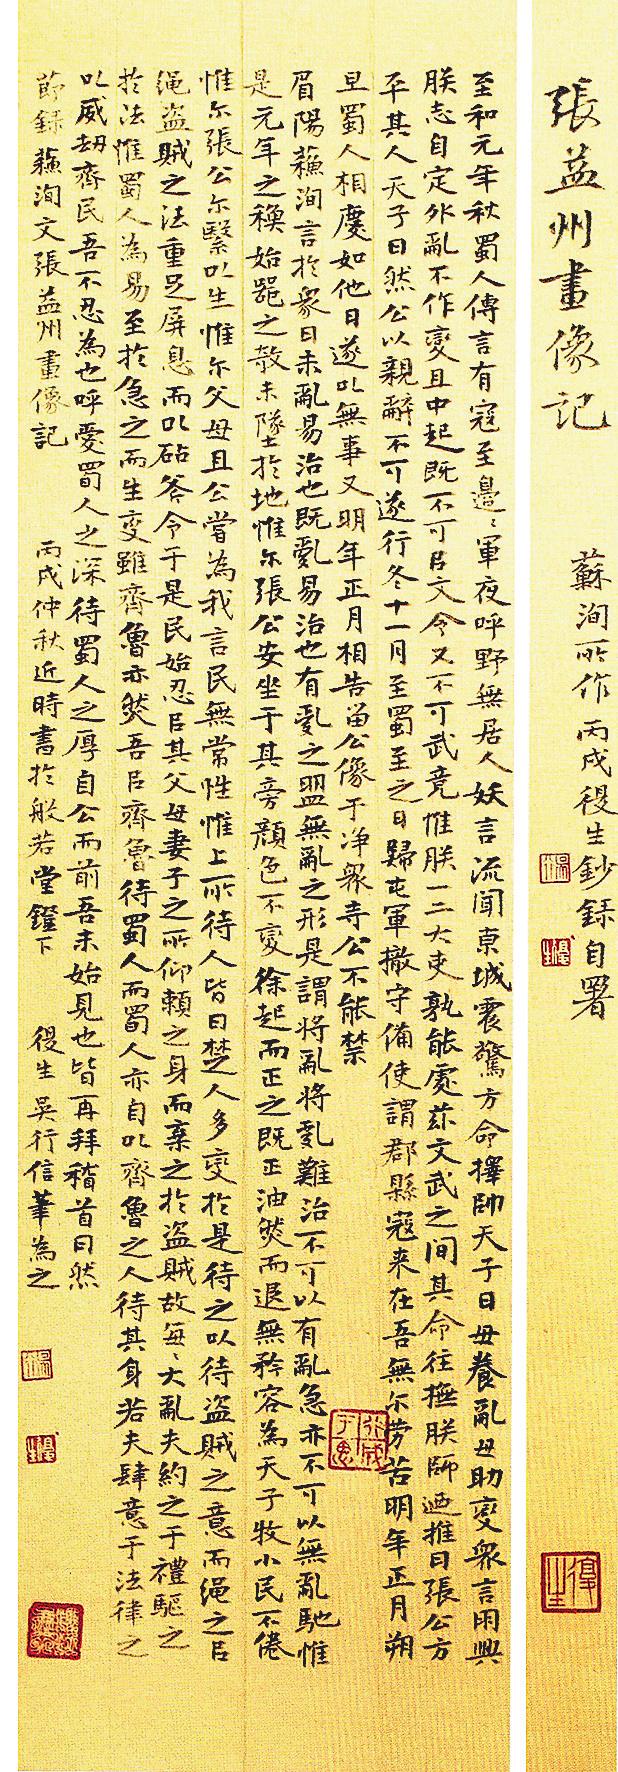 張益州畫像記
蘇洵所作 丙戌復生鈔錄自署
至和元年秋蜀人傳言有寇至邊邊軍夜呼野無居人妖言流聞京城震驚方命擇帥天子曰毋養亂毋助變衆言朋興
朕志自定外亂不作變且中起既不可㠯文令又不可武竟惟朕一二大吏孰能處茲文武之間其命往撫朕師迺推曰張公方
平其人天子曰然公以親辭不可遂行冬十一月至蜀至之日歸屯軍撤守備使謂郡縣寇來在吾無尒勞苦明年正月朔
旦蜀人相慶如他日遂㠯無事又明年正月相告畱公像于淨衆寺公不能禁
眉陽蘇洵言於衆曰未亂易治也既亂易治也有亂之萌無亂之形是謂將亂將亂難治不可以有亂急亦不可以無亂馳惟
是元年之秋始器之欹未墜於地惟尒張公安坐于其旁顏色不變徐起而正之既正油然而退無矜容為天子牧小民不倦
惟尒張公尒繄㠯生惟尒父母且公嘗為我言民無常性惟上所待人皆曰楚人多變於是待之以待盜賊之意而繩之㠯
繩盜賊之法重足屏息而㠯砧斧令于是民始忍㠯其父母妻子之所仰賴之身而棄之於盜賊故每每大亂夫約之于禮驅之
於法惟蜀人為易至於急之而生變雖齊魯亦然吾㠯齊魯待蜀人而蜀人亦自㠯齊魯之人待其身若夫肆意于法律之
㠯威劫齊民吾不忍為也呼愛蜀人之深待蜀人之厚自公而前吾未始見也皆再拜稽首曰然
節錄蘇洵文張益州畫像記 丙戌仲秋近時書於般若堂鐙下 復生吳行信筆為之
復生